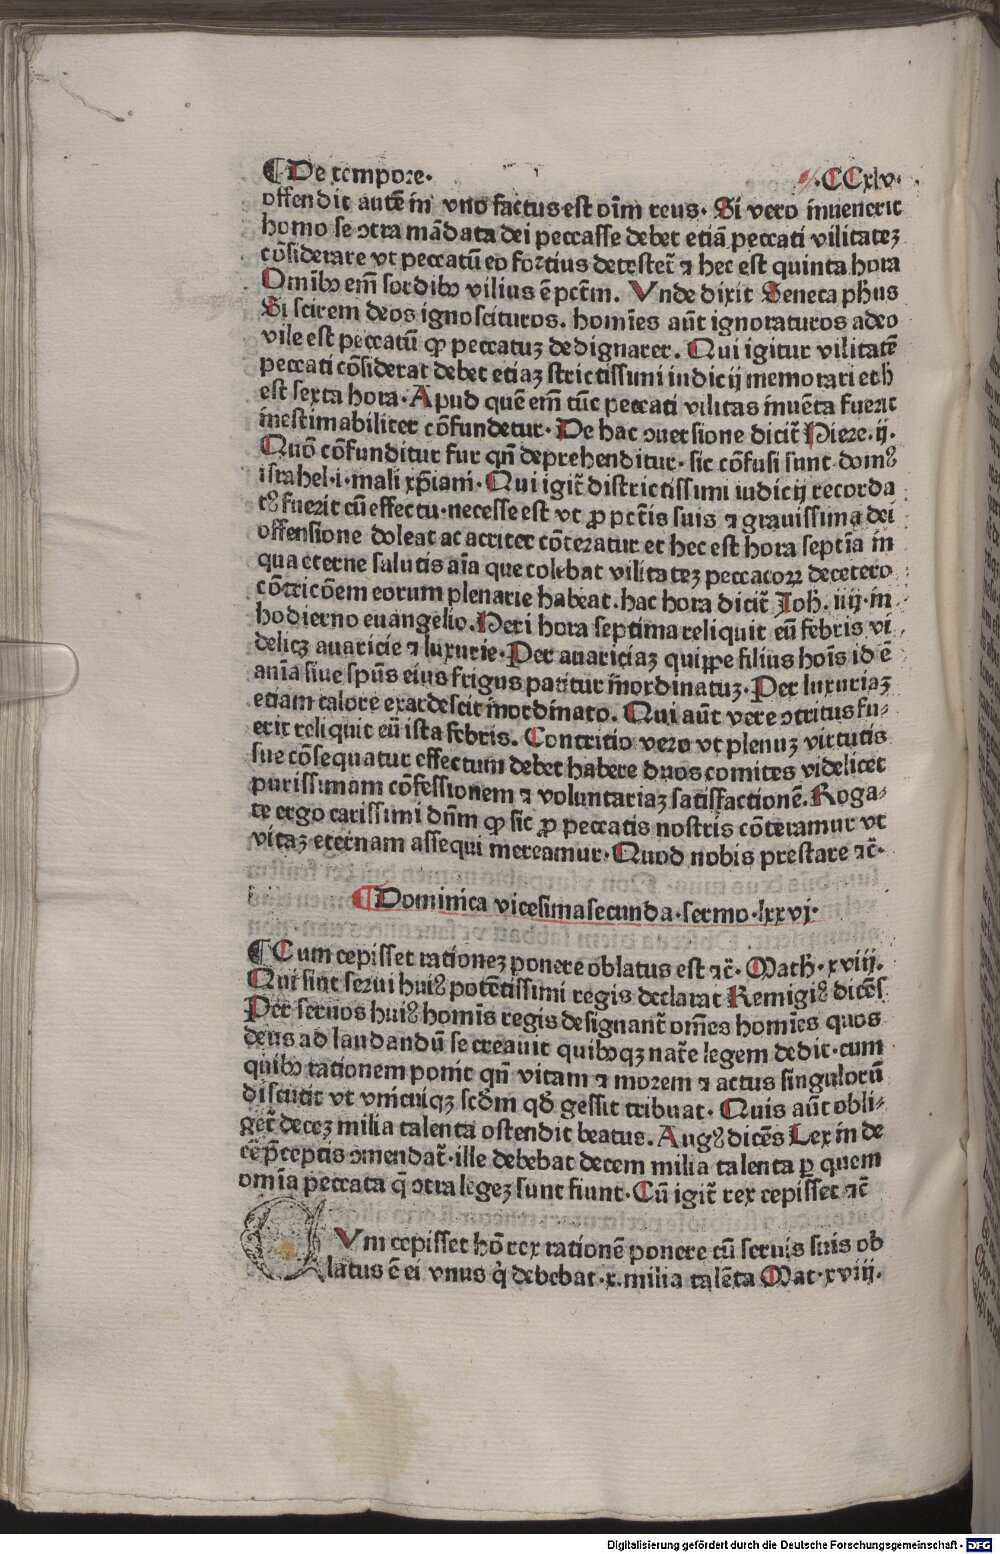 ¶ De tempore. .CCxlv.
offendit autē in vno factus est oīm reus. Si vero inuenerit
homo se ↄtra mādata dei peccasse debet etiā peccati vilitatez
cōsiderare vt peccatū eo fortius detestet̄ ⁊ hec est quinta hora
Omībꝰ em̄ sordibꝰ vilius ē pctm̄. Vnde dixit Seneca ph̄us
Si scirem deos ignoscituros. homīes aūt ignoraturos adeo
vile est peccatū ꝙ peccatuȝ dedignarer. Qui igitur vilitatē
peccati cōsiderat debet etiaȝ strictissimi iudicij memorari et h̄
est sexta hora. Apud quē em̄ tūc peccati vilitas inuēta fuerit
inestimabiliter cōfundetur. De hac ↄuersione dicit̄ Hiere. ij.
Quō cōfunditur fur qn̄ deprehenditur. sic cōfusi sunt domꝰ
israhel .i. mali xp̄iani. Qui igit̄ districtissimi iudicij recorda
tꝰ fuerit cū effectu. necesse est vt ꝓ pctīs suis ⁊ grauissima dei
offensione doleat ac acriter cōteratur et hec est hora septīa in
qua eterne salutis aīa que colebat vilitateȝ peccatoꝝ decetero
cōtricōem eorum plenarie habeat. hac hora dicit̄ Joh̄. iiij. in
hodierno euangelio. Heri hora septima reliquit eū febris vi
delicȝ auaricie ⁊ luxurie. Per auariciaȝ quippe filius hoīs id ē
anīa siue spūs eius frigus patitur inordinatuȝ. Per luxuriaȝ
etiam calore exardescit inordinato. Qui aūt vere ↄtritus fu⸗
erit reliquit eū ista febris. Contritio vero vt plenuȝ virtutis
sue cōsequatur effectum debet habere duos comites videlicet
purissimam cōfessionem ⁊ voluntariaȝ satisfactionē. Roga⸗
te ergo carissimi dn̄m ꝙ sic ꝓ peccatis nostris cōteramur vt
vitaȝ eternam assequi mereamur. Quod nobis prestare ⁊c̄.
¶ Dominica vicesimasecunda. sermo. lxxvj.
¶ Cum cepisset rationeȝ ponere oblatus est ⁊c̄. Math̄. xviij.
Qui sint serui huiꝰ potētissimi regis declarat Remigiꝰ dicēs
Per seruos huiꝰ homīs regis designant̄ om̄es homīes quos
deus ad laudandū se creauit quibꝰqȝ nat̄e legem dedit. cum
quibꝰ rationem ponit qn̄ vitam ⁊ morem ⁊ actus singulorū
discutit vt vnicuiqȝ scd̄m qd̄ gessit tribuat. Quis aūt obli⸗
get̄ deceȝ milia talenta ostendit beatus. Augꝰ dicēs Lex in de
cē p̄ceptis ↄmendat̄. ille debebat decem milia talenta ꝑ quem
omīa peccata q̄ ↄtra legeȝ sunt fiunt. Cū igit̄ rex cepisset ⁊c̄
CVm cepisset hō rex rationē ponere cū seruis suis ob
latus ē ei vnus q̇ debebat .x. milia talēta Mat. xviij.
Digitalisierung gefördert durch die Deutsche Forschungsgemeinschaft - DFG